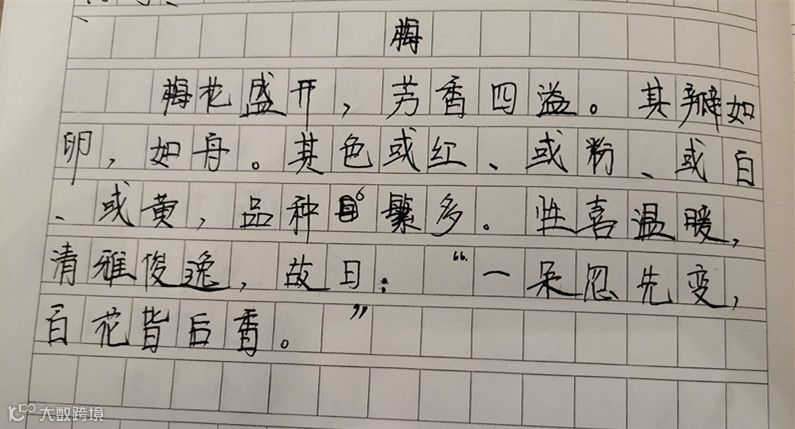 梅
梅花盛开，芳香四溢。其瓣如
卵，如舟。其色或红、或粉、或白
、或黄，品种繁多。性喜温暖，
清雅俊逸，故曰：“一朵忽先变，
百花皆后香。”
大数跨境